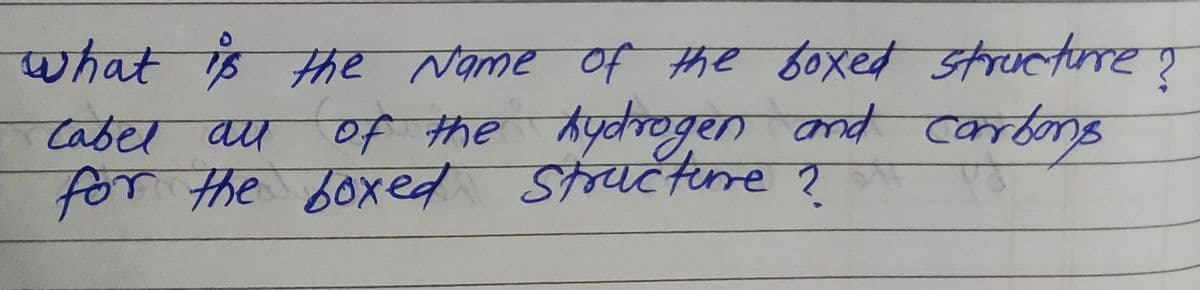 what is the Name of the boxed structure ?
Label all of the hydrogen and carbons
for the boxed structure ?